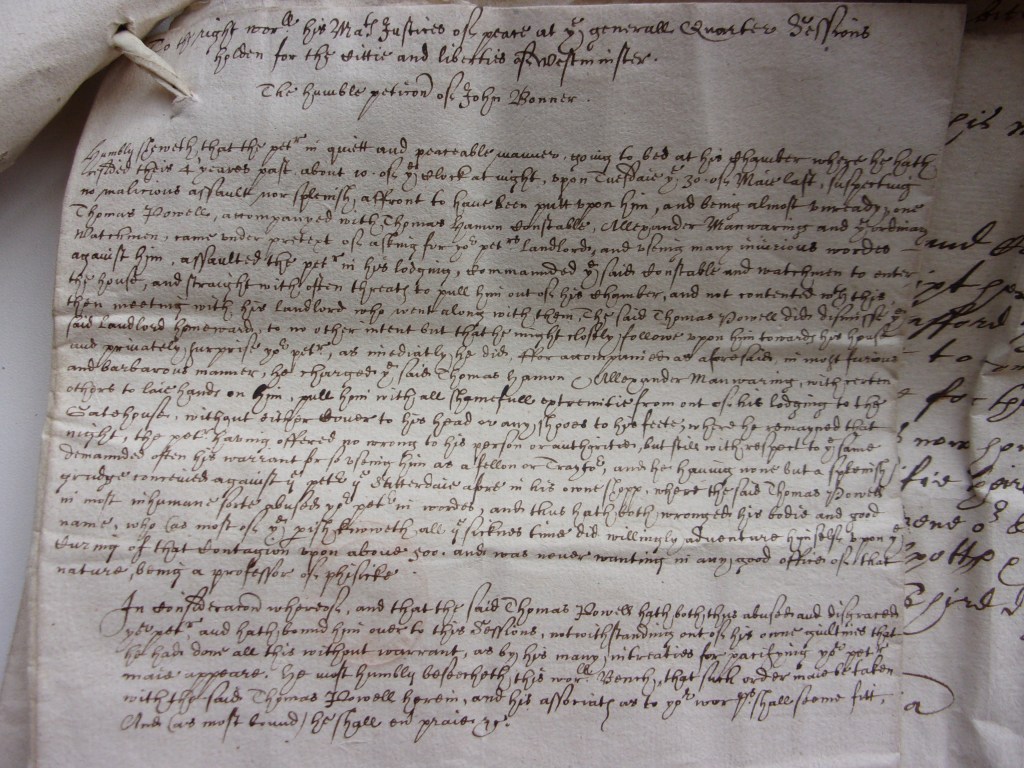 To the right wor:ll his Mats Justices of peace at ye generall Quarter Sessions
holden for the Cittie and liberties of Westminster.
The humble peticon of John Bonner.
Humbly sheweth, that the petr in quiett and peaceable manner, going to bed at his Chamber where he hath
their 4 yeares past, about 10. of ye Clock at night, upon Tuesdaie ye 30. of Maie last, suspecting
no malicious assault, nor splenish affront to have been putt upon him, and being almost unready, one
Thomas Powell, accompanyed with Thomas Hamon Constable, Allexander Manwaring and
Watchmen, came under pretext of asking for yor petrs Landlord, and using many iniurious wordes
against him, assaulted the petr in his lodging, Commaunded ye said Constable and watchmen to enter
the house, and straight with often threats to pull him out of his Chamber, and not contented wth this
then meeting with his Landlord who went along with them, The said Thomas Powell did dismisse ye
said Landlord homeward, to no other intent but that he might closely followe upon him towards his house
and privately surprise yor petr, as imediatly he did, ffor accompanied as aforesaid, in most furious
and barbarous manner, he charged ye said Thomas Hamon Allexander Manwaring, with certen
others to laie hands on him, pull him with all shamefull extremitie from out of his lodging to the
Gatehouse, without either Cover to his head or any shoes to his feete, where he remayned that
night, the petr having offered no wrong to his person or authoritie, but still with respect to ye same
demaunded often his warrant for so useing him as a fellon or Traytor, and he having none but a splenish
grudge conceived against yor petr ye Satterdaie afore in his owne shopp, where the said Thomas Powell
in most inhumane sorte abused yor petr in wordes, and thus hath both wronged his bodie and good
name, who (as most of ye parish knoweth) all ye sicknes time did willingly adventure himself upon ye
Curing of that Contagion upon above 500. and was never wanting in any good office of that
nature, being a professor of phisicke.
In Consideracon whereof, and that the said Thomas Powell hath both thus abused and disgraced
yor petr, and hath bound him over to this Sessions, notwithstanding out of his owne guiltines that
he had done all this without warrant, as by his many intreaties for pacifying yor petr
maie appeare. He most humbly beseecheth this worll Bench, that such order maie be taken
with the said Thomas Powell herein, and his associats as to yor worps. shall seeme fitt,
And (as most bound) he shall ever praie &c.